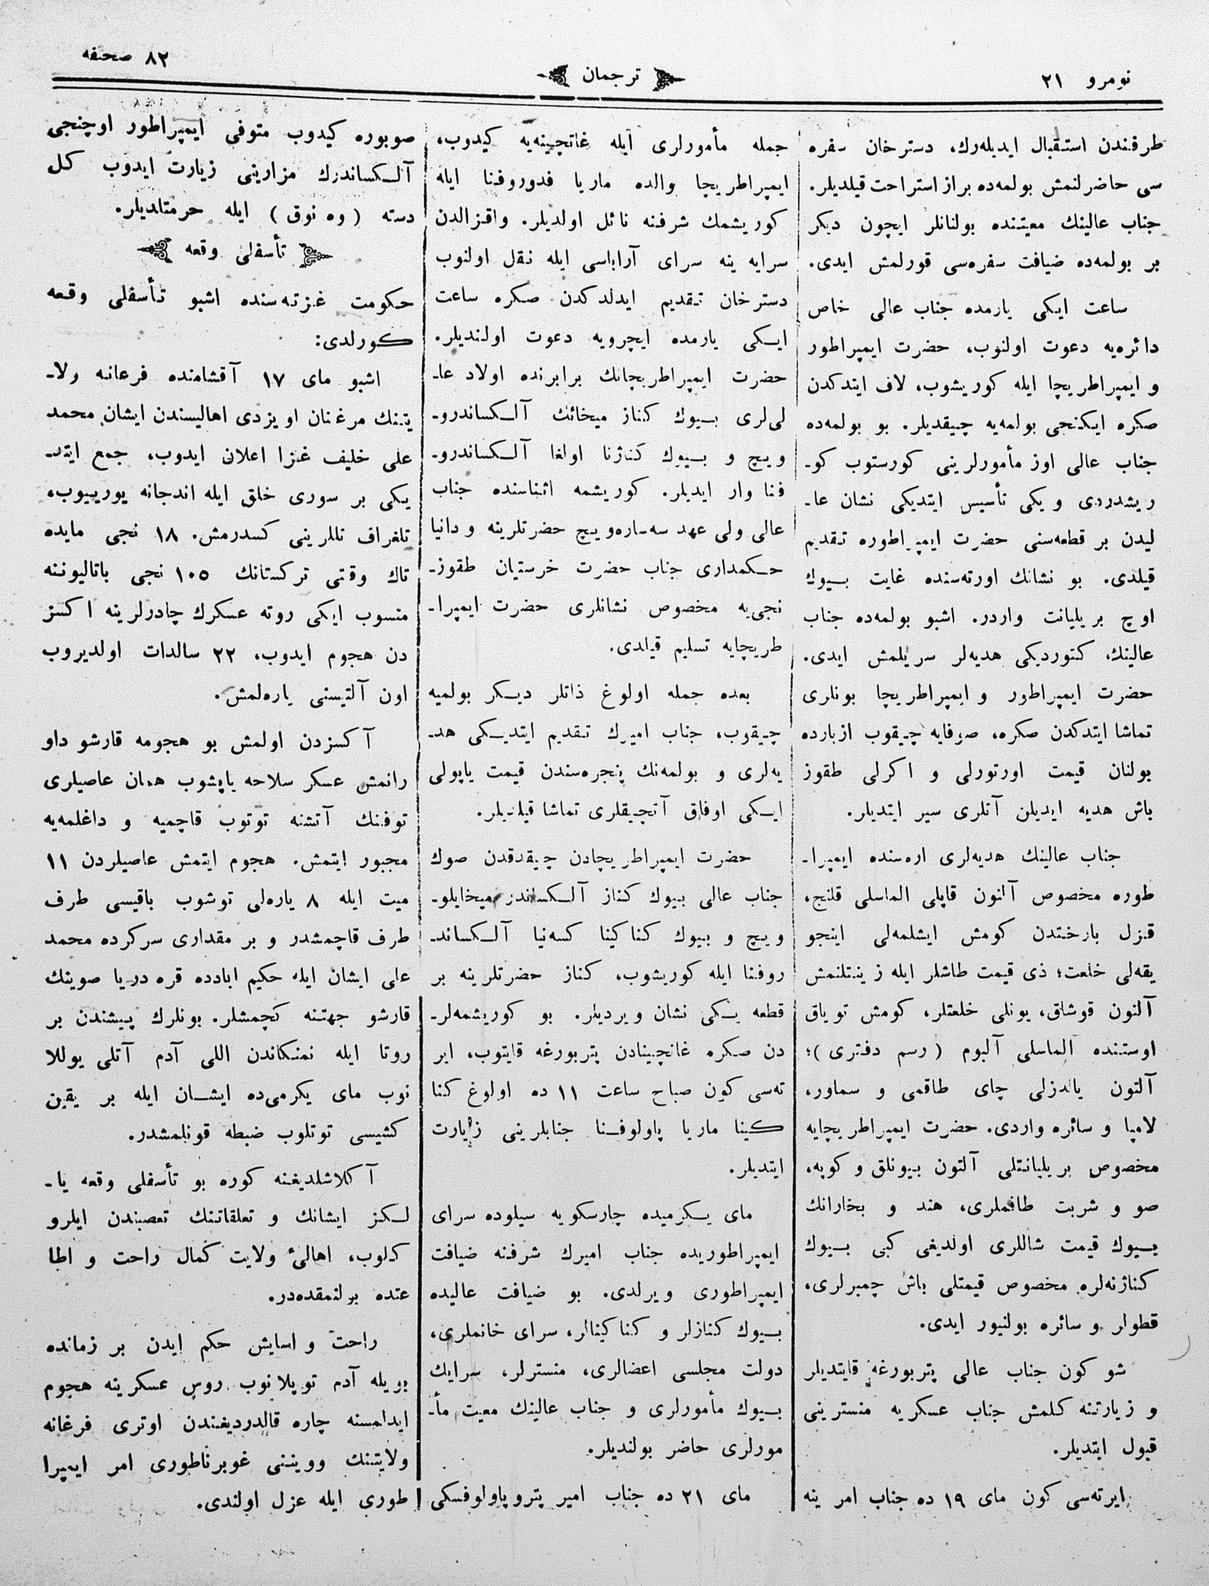 نومرو ٢١
ترجمان
٨٢ صحيفه
طرفندن استقبال ايديله‌رك، دسترخان سفره
سى حاضرلنمش بولمه‌ده براز استراحت قيلديلر.
جناب عالينك معيتنده بولنانلر ايچون ديكر
بر بولمه‌ده ضيافت سفره‌سى قورلمش ايدى.
ساعت ايكى يارمده جناب عالى خاص
دائره‌يه دعوت اولنوب، حضرت ايمپراطور
و ايمپراطريچا ايله كوريشوب، لاف ايتدكدن
صكره ايكنجى بولمه‌يه چيقديلر. بو بولمه‌ده
جناب عالى اوز مأمورلرينى كورستوب كو۔
ريشدردى و يكى تأسيس ايتديكى نشان عا۔
ليدن بر قطعه‌سنى حضرت ايمپراطوره تقديم
قيلدى. بو نشانك اورته‌سنده غايت بيوك
اوچ بريليانت واردر. اشبو بولمه‌ده جناب
عالينك، كتورديكى هديه‌لر سريلمش ايدى.
حضرت ايمپراطور و ايمپراطريچا بونلرى
تماشا ايتدكدن صكره، صرفايه چيقوب ازبارده
بولنان قيمت اورتورلى و اكرلى طقوز
باش هديه ايديلن آتلرى سير ايتديلر.
جناب عالينك هديه‌لرى اره‌سنده ايمپرا۔
طوره مخصوص آلتون قاپلى الماسلى قلنج،
قزل بارختدن كومش ايشلمه‌لى اينجو
يقه‌لى خلعت؛ ذى قيمت طاشلر ايله زينتلنمش
آلتون قوشاق، يونلى خلعتلر، كومش توياق
اوستنده الماسلى آلبوم (رسم دفترى)؛
آلتون يالدزلى چاى طاقمى و سماور،
لامپا و سائره واردى. حضرت ايمپراطريچايه
مخصوص بريليانتلى آلتون بيونلق و كوپه،
صو و شربت طاقملرى، هند و بخارانك
بيوك قيمت شاللرى اولديغى كبى بيوك
كناژنه‌لره مخصوص قيمتلى باش چمبرلرى،
قطولر و سائره بولنيور ايدى.
شو كون جناب عالى پتربورغه قايتديلر
و زيارتنه كلمش جناب عسكريه منسترينى
قبول ايتديلر.
ايرته‌سى كون ماى ١٩ ده جناب امر ينه
جمله مأمورلرى ايله غاتچينه‌يه كيدوب،
ايمپراطريچا والده ماريا فدوروفنا ايله
كوريشمك شرفنه نائل اولديلر. واقزالدن
سرايه ينه سراى آراباسى ايله نقل اولنوب
دسترخان تقديم ايدلدكدن صكره ساعت
ايكى يارمده ايچرويه دعوت اولنديلر.
حضرت ايمپراطريچانك برابرنده اولاد عا۔
لى‌لرى بيوك كناز ميخائك آلكساندرو۔
ويچ و بيوك كناژنا اولغا آلكساندرو۔
فنا وار ايديلر. كوريشمه اثناسنده جناب
عالى ولى عهد سه‌ساره‌ويچ حضرتلرينه و دانيا
حكمدارى جناب حضرت خرستيان طقوز۔
نجى‌يه مخصوص نشانلرى حضرت ايمپرا۔
طريچايه تسليم قيلدى.
بعده جمله اولوغ ذاتلر ديكر بولميه
چيقوب، جناب اميرك تقديم ايتديكى هد۔
يه‌لرى و بولمه‌نك پنجره‌سندن قيمت ياپولى
ايكى اوفاق آتچيقلرى تماشا قيلديلر.
حضرت ايمپراطريچادن چيقدقدن صوك
جناب عالى بيوك كناز آلكساندر ميخايلو۔
ويچ و بيوك كناكينا كسه‌نيا آلكساند۔
روفنا ايله كوريشوب، كناز حضرتلرينه بر
قطعه يكى نشان ويرديلر. بو كوريشمه‌لر۔
دن صكره غاتچينادن پتربورغه قايتوب، اير
ته‌سى كون صباح ساعت ١١ ده اولوغ كنا
كينا ماريا پاولوفنا جنابلرينى زيارت
ايتديلر.
ماى يكرميده چارسكويه سيلوده سراى
ايمپراطوريده جناب اميرك شرفنه ضيافت
ايمپراطورى ويرلدى. بو ضيافت عاليده
بيوك كنازلر و كناكينالر، سراى خانملرى،
دولت مجلسى اعضالرى، منسترلر، سرايك
بيوك مأمورلرى و جناب عالينك معيت مأ۔
مورلرى حاضر بولنديلر.
ماى ٢١ ده جناب امير پتروپاولوفسكى
صوبوره كيدوب متوفى ايمپراطور اوچنجى
آلكساندرك مزارينى زيارت ايدوب كل
دسته (وه‌نوق) ايله حرمتلديلر.
تأسفلى وقعه
حكومت غزته‌سنده اشبو تأسفلى وقعه
كورلدى:
اشبو ماى ١٧ آقشامنده فرغانه ولا۔
يتنك مرغنان اويزدى اهاليسندن ايشان محمد
على خليف غزا اعلان ايدوب، جمع ايتد۔
يكى بر سورى خلق ايله اندجانه يورييوب،
تلغراف تللرينى كسدرمش. ١٨ نجى مايده
تاك وقتى تركستانك ١٠٥ نجى باتاليوننه
منسوب ايكى روته عسكرك چادرلرينه اكسز
دن هجوم ايدوب، ٢٢ سالدات اولديروب
اون آلتيسنى ياره‌لمش.
آكسزدن اولمش بو هجومه قارشو داو
رانمش عسكر سلاحه ياپشوب همان عاصيلرى
توفنك آتشنه توتوب قاچميه و داغلمه‌يه
مجبور ايتمش. هجوم ايتمش عاصيلردن ١١
ميت ايله ٨ ياره‌لى توشوب باقيسى طرف
طرف قاچمشدر و بر مقدارى سركرده محمد
على ايشان ايله حكيم ابادده قره دريا صوينك
قارشو جهتنه كچمشلر. بونلرك پيشندن بر
روتا ايله نمنكاندن اللى آدم آتلى يوللا
نوب ماى يكرمى‌ده ايشان ايله بر يقين
كشيسى توتلوب ضبطه قونلمشدر.
آكلاشلديغنه كوره بو تأسفلى وقعه يا۔
لكز ايشانك و تعلقاتنك تعصبندن ايلرو
كلوب، اهالئ ولايت كمال راحت و اطا
عتده بولنمقده‌در.
راحت و اسايش حكم ايدن بر زمانده
بويله آدم توپلانوب روس عسكرينه هجوم
ايدلمسنه چاره قالدرديغندن اوترى فرغانه
ولايتنك وويننى غوبرناطورى امر ايمپرا
طورى ايله عزل اولندى.